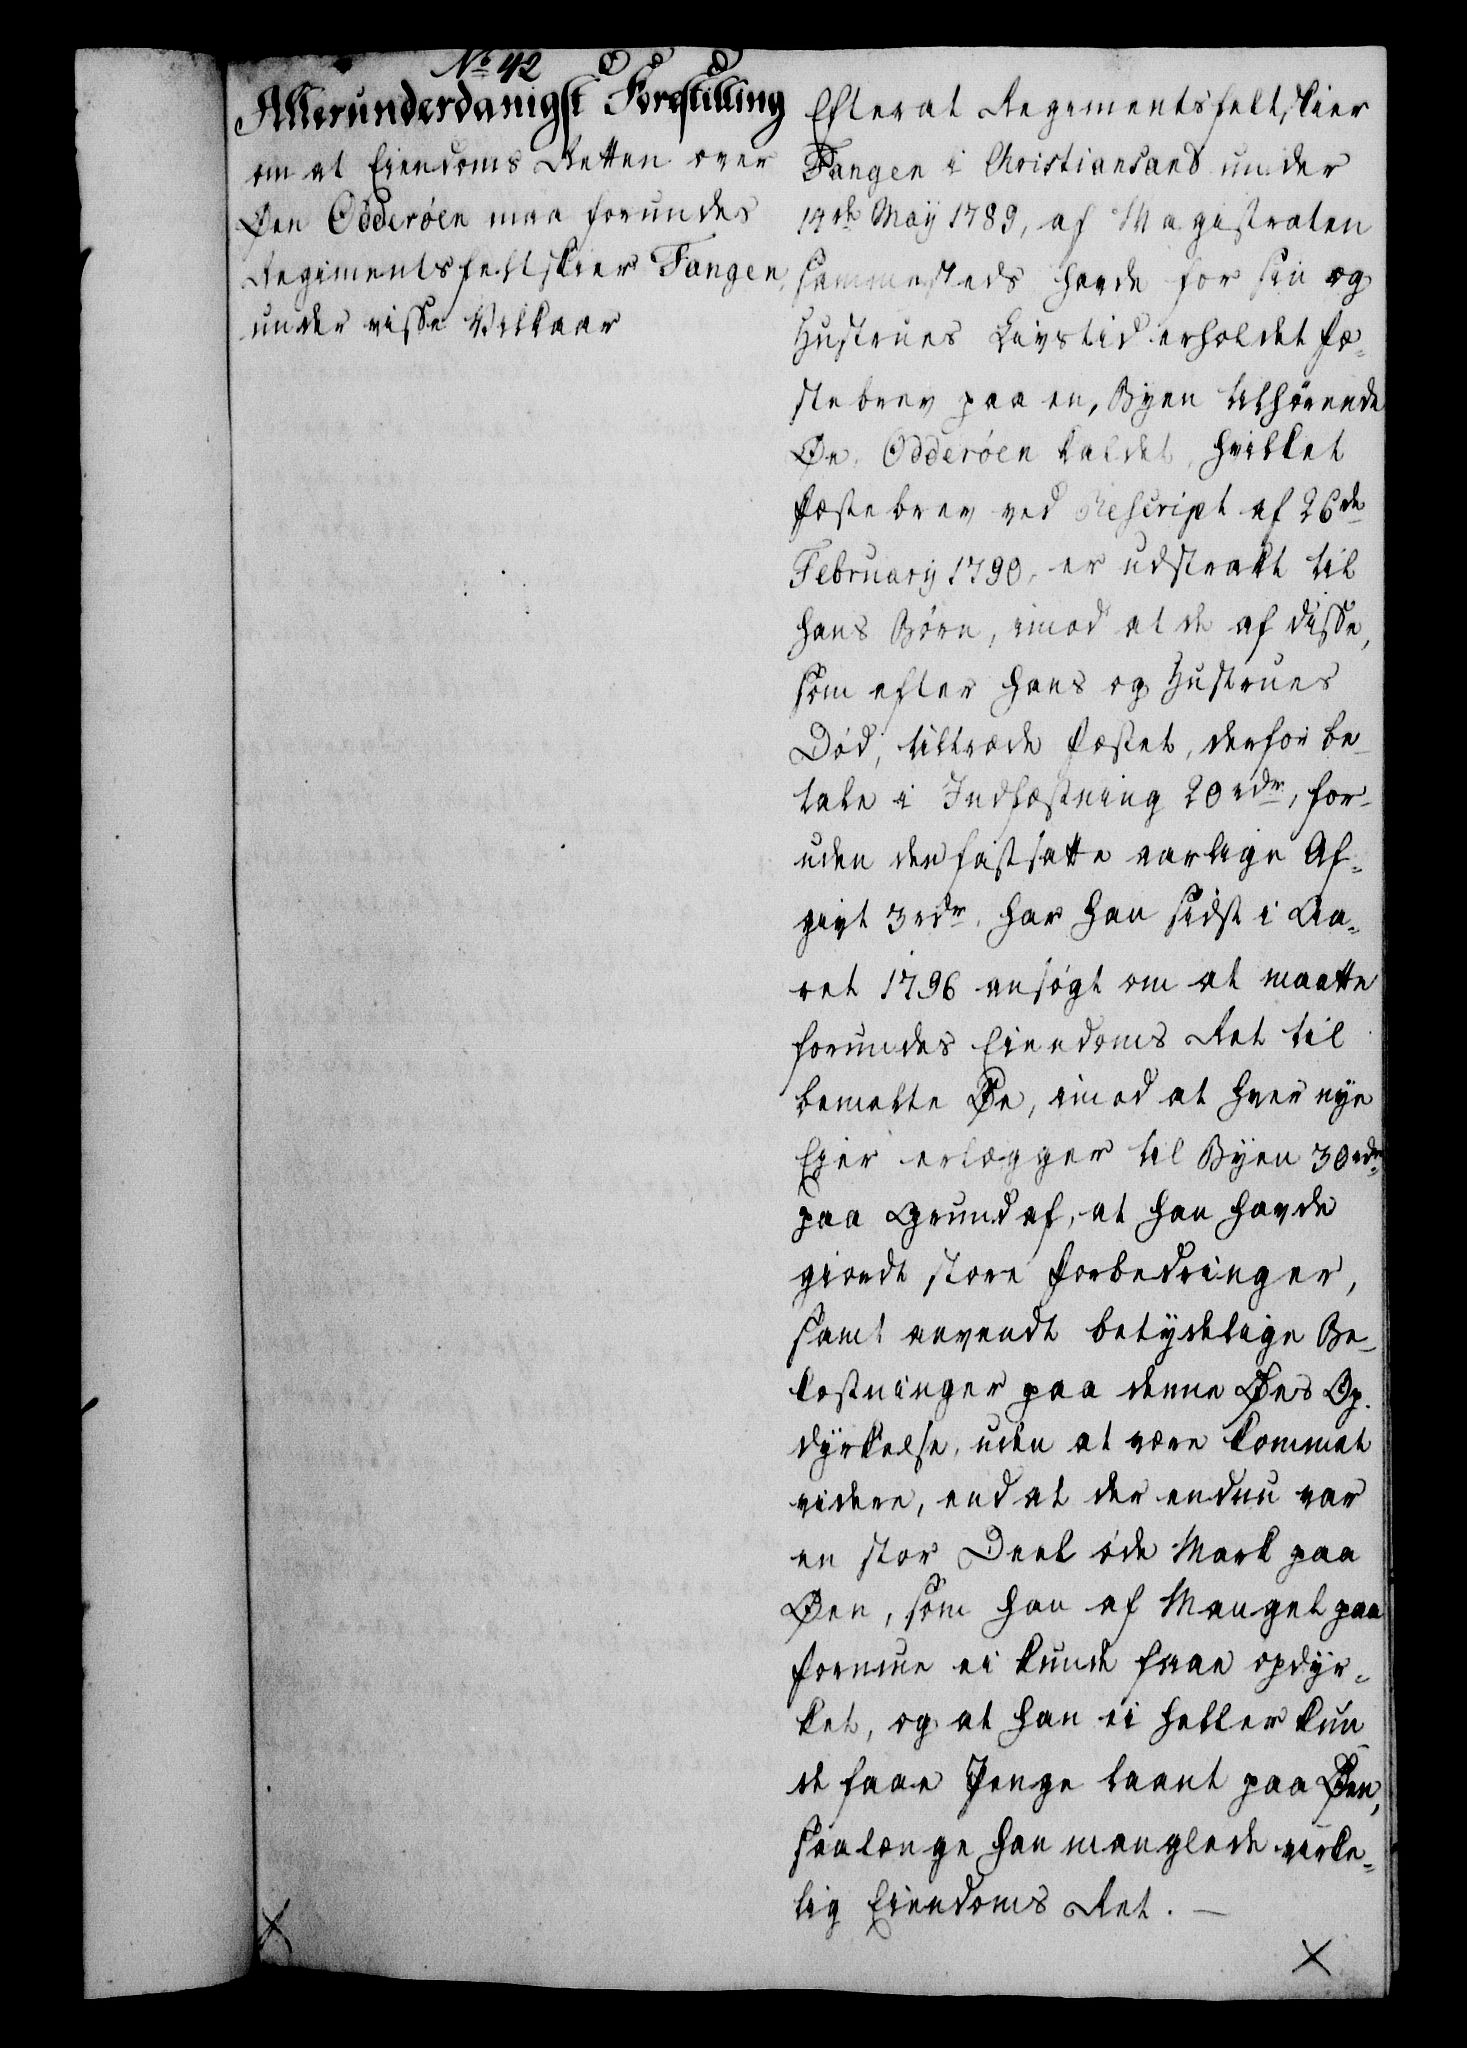 No 42
Allerunderdanigst Forestilling
om at Eiendoms Retten over
Øen Odderøen maa forundes
Regimentsfeltskier Fangen,
under visse Vilkaar
Efterat Regimentsfeltskier
Fangen i Christiansand under
14de May 1789, af Magistraten
sammesteds havde for sin og
Hustrues Livstid erholdet Fæ-
stebrev paa en, Byen tilhørende
Øe, Odderøen kaldet, hvilket
Fæstebrev ved Rescript af 26de
February 1790, er udstrakt til
hans Børn, imod at de af disse,
som efter hans og Hustrues
Død, tiltræde Fæstet, derfor be-
tale i Indfæstning 20 rdr, for-
uden den fastsatte aarlige Af-
givt 3 rdr, har han sidst i Aa-
ret 1796 ansøgt om at maatte
forundes Eiendoms Ret til
bemelte Øe, imod at hver nye
Eier erlægger til Byen 30 rdr
paa Grund af, at han havde
giordt store Forbedringer,
samt anvendt betydelige Be-
kostninger paa denne Øes Op-
dyrkelse, uden at være kommet
videre, end at der endnu var
en stor Deel øde Mark paa
Øen, som han af Mangel paa
Formue ei kunde faae opdyr-
ket, og at han ei heller kun-
de faae Penge laant paa Øen,
saalænge han manglede virke-
lig Eiendoms Ret. —